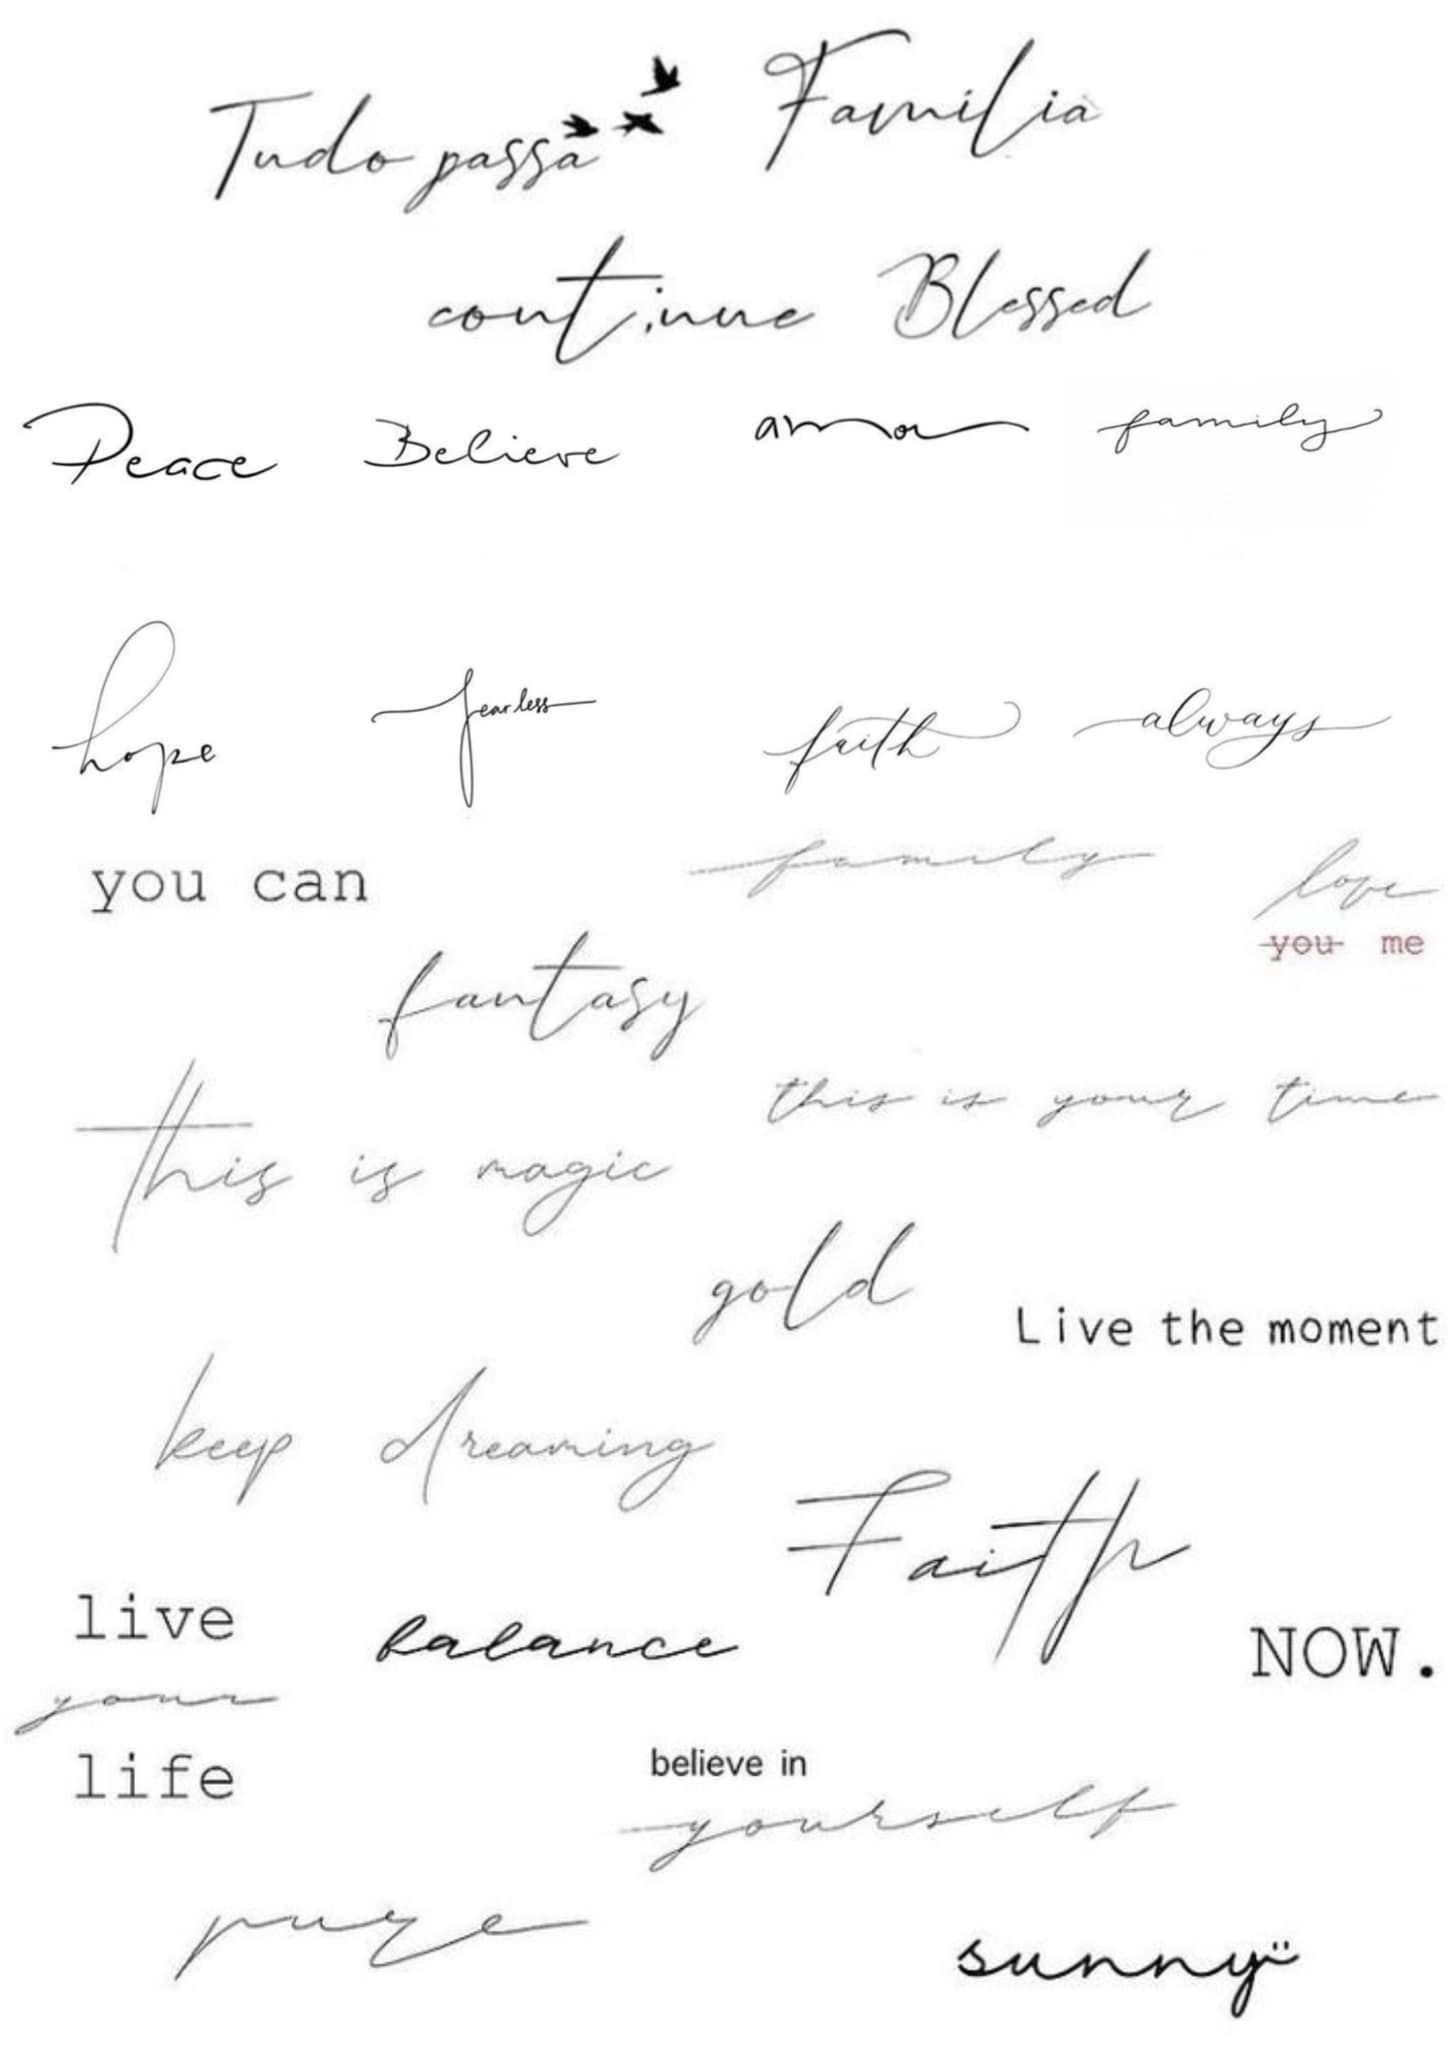 Tudo passa Familia
cont;nue Blessed
Peace Believe amor family
hope fearless faith always
you can family love
you me
fantasy
this is your time
this is magic
gold
Live the moment
keep dreaming
Faith
live
balance NOW.
your
life
believe in
yourself
pure
sunny